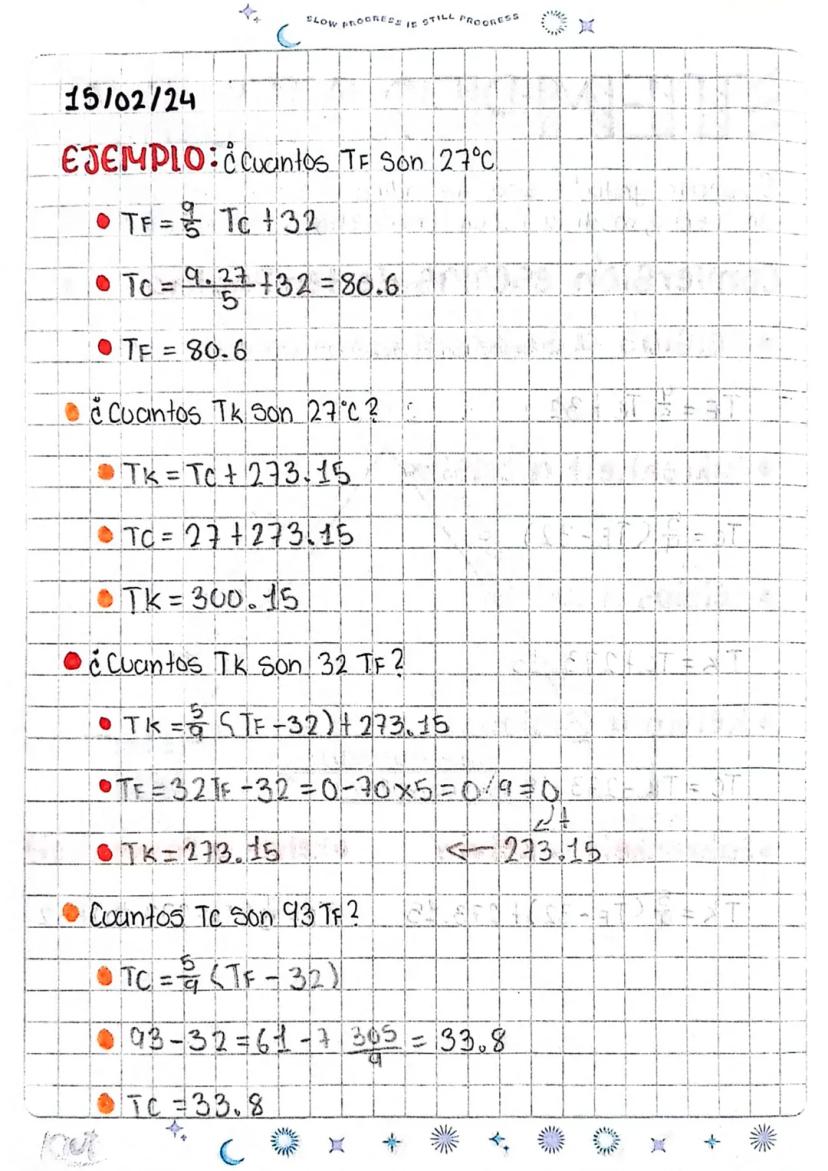 SLOW PROGRESS IS STILL PROGRESS
15/02/24
EJEMPLO: ¿Cuantos TF Son 27°C
• TF = 9/5 Tc + 32
• Tc = 9.27/5 + 32 = 80.6
• TF = 80.6
• ¿Cuantos Tk Son 27°C?
• Tk = Tc + 273.15
• Tc = 27 + 273.15
• Tk = 300.15
• ¿Cuantos Tk Son 32 TF?
• Tk = 5/9 (TF - 32) + 273.15
• TF = 32TF - 32 = 0 -> 0x5 = 0/9 = 0
↙ +
• Tk = 273.15 ← 273.15
• Cuantos Tc Son 93 TF?
• Tc = 5/9 (TF - 32)
• 93 - 32 = 61 -> 305/9 = 33.8
• Tc = 33.8